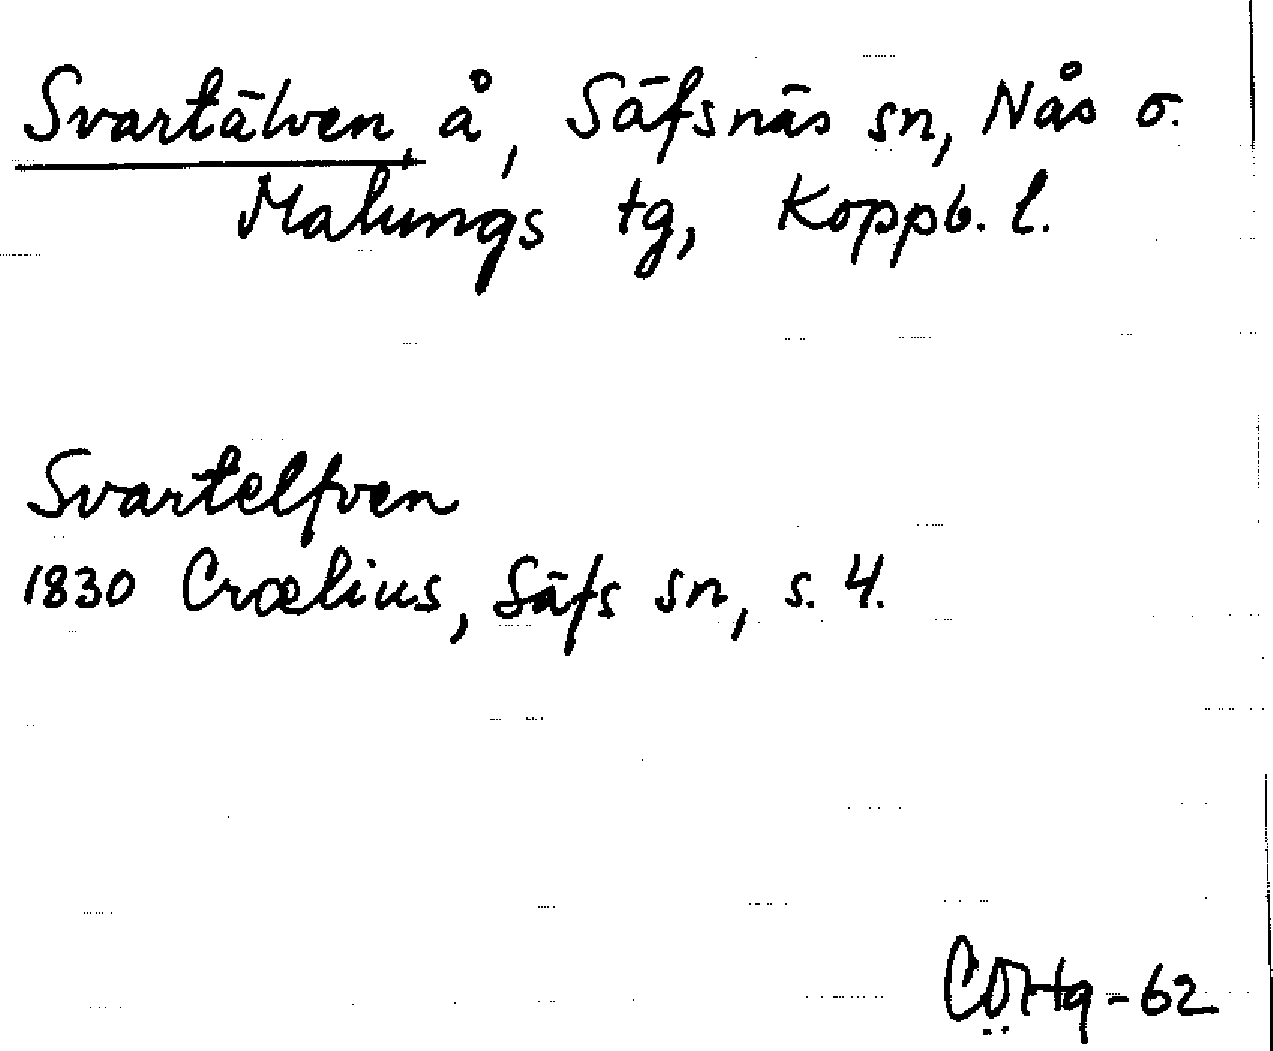 Svartälven, å, Säfsnäs sn, Nås o.
Malungs tg, Koppb. l.
Svartelfven
1830 Crælius, Säfs sn, s. 4.
-62